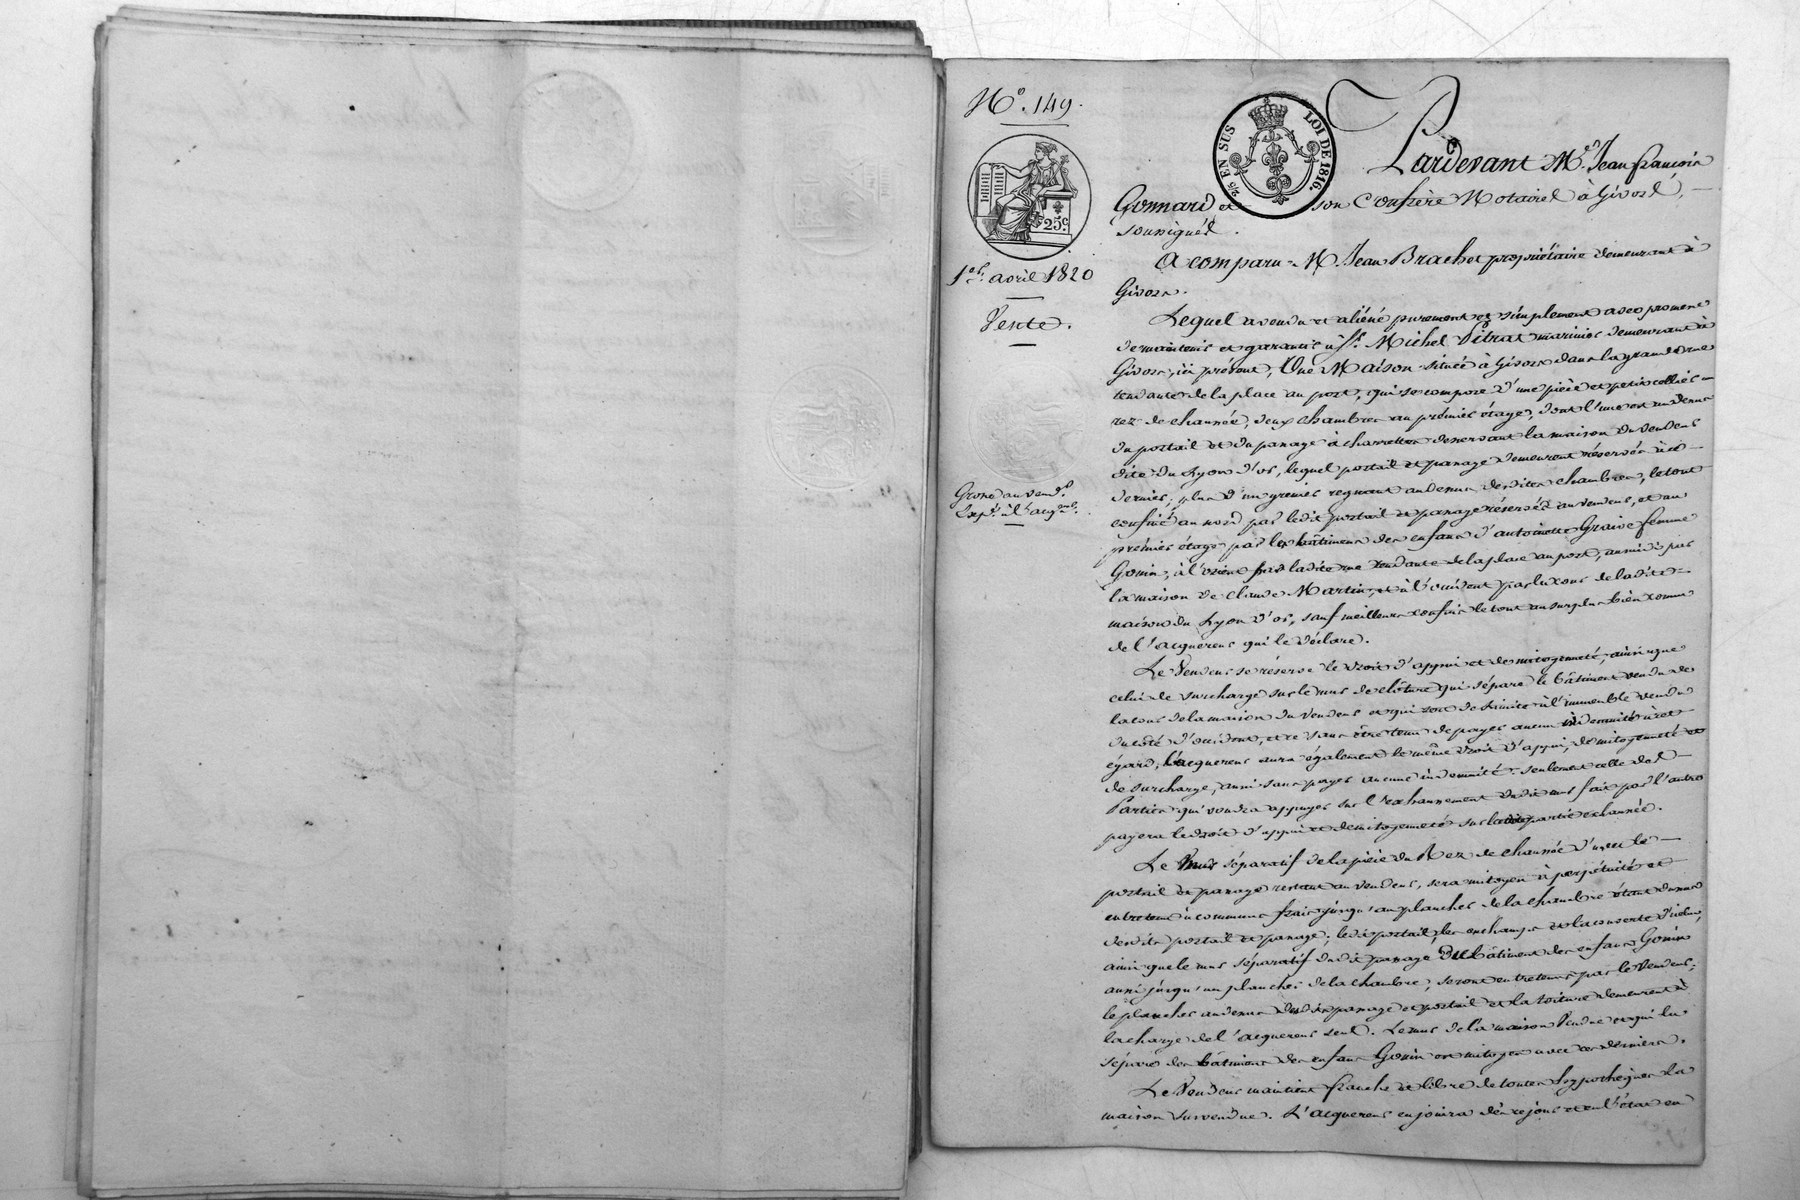 N.° 149.
25 EN SUS LOI DE 1816.
25.c
1.er avril 1820
Vente.
Grosse au vend.r
Exp.on à l'acq.r
Pardevant M.e Jean françois
Gonnard et son Confrère Notaires à Givors,
soussignés.
A comparu M. Jean Brachet propriétaire demeurant à
Givors.
Lequel a vendu et aliéné purement et simplement avec promesse
de maintenir et garantir à S.r Michel Pitrat marinier demeurant à
Givors, ici présent, Une Maison située à Givors dans la grande rue
tendante de la place au port, qui se compose d'une pièce et petit cellier
rez de chaussée, deux chambres au prémier étage, dont l'une est au dessus
du portail et du passage à charrettes desservant la maison du vendeur
dite du Lyon d'or, lequel portail et passage demeurent réservés à ce
dernier; plus d'un grenier regnant au dessus desdites chambres, le tout
confiné au nord par ledit portail et passage réservés au vendeur, et au
prémier étage par les bâtimens des enfans d'antoinette Graive femme
Gonin, à l'orient par ladite rue tendante de la place au port, au midi par
la maison de Claude Martin, et à l'occident par la cour de ladite
maison du Lyon d'or, sauf meilleurs confins le tout au surplus bien connu
de l'acquereur qui le déclare.
Le Vendeur se réserve le droit d'appui et de mitoyenneté, ainsi que
celui de surcharge sur le mur de clôture qui sépare le bâtiment vendu de
la cour de la maison du vendeur et qui sert de limite à l'immeuble vendu
du côté d'occident, et ce sans être tenu de payer aucune indemnité à cet
égard; l'acquereur aura également le même droit d'appui, de mitoyenneté et
de surcharge, aussi sans payer aucune indemnité. seulement celle des
Parties qui voudra appuyer sur l'exhaussement dudit mur fait par l'autre
payera le droit d'appui et de mitoyenneté sur la dite partie exhaussée.
Le mur séparatif de la pièce du Rez de chaussée d'avec le
portail et passage restant au vendeur, sera mitoyen à perpétuité et
entretenu à communs frais jusqu'au plancher de la chambre étant dessus
desdits portail et passage; ledit portail, les
ainsi que le mur séparatif dudit passage du bâtiment des enfans Gonin
aussi jusqu'au plancher de la chambre, seront entretenus par le Vendeur;
le plancher au dessus desdits passage et portail et la toiture demeurent à
la charge de l'acquereur seul. Le mur de la maison Vendue et qui la
sépare des bâtimens des enfans Gonin est mitoyen avec ces derniers.
Le Vendeur maintient franche et libre de toutes hypothèques la
maison survendue. L'acquereur en jouira dès ce jour et en l'état en